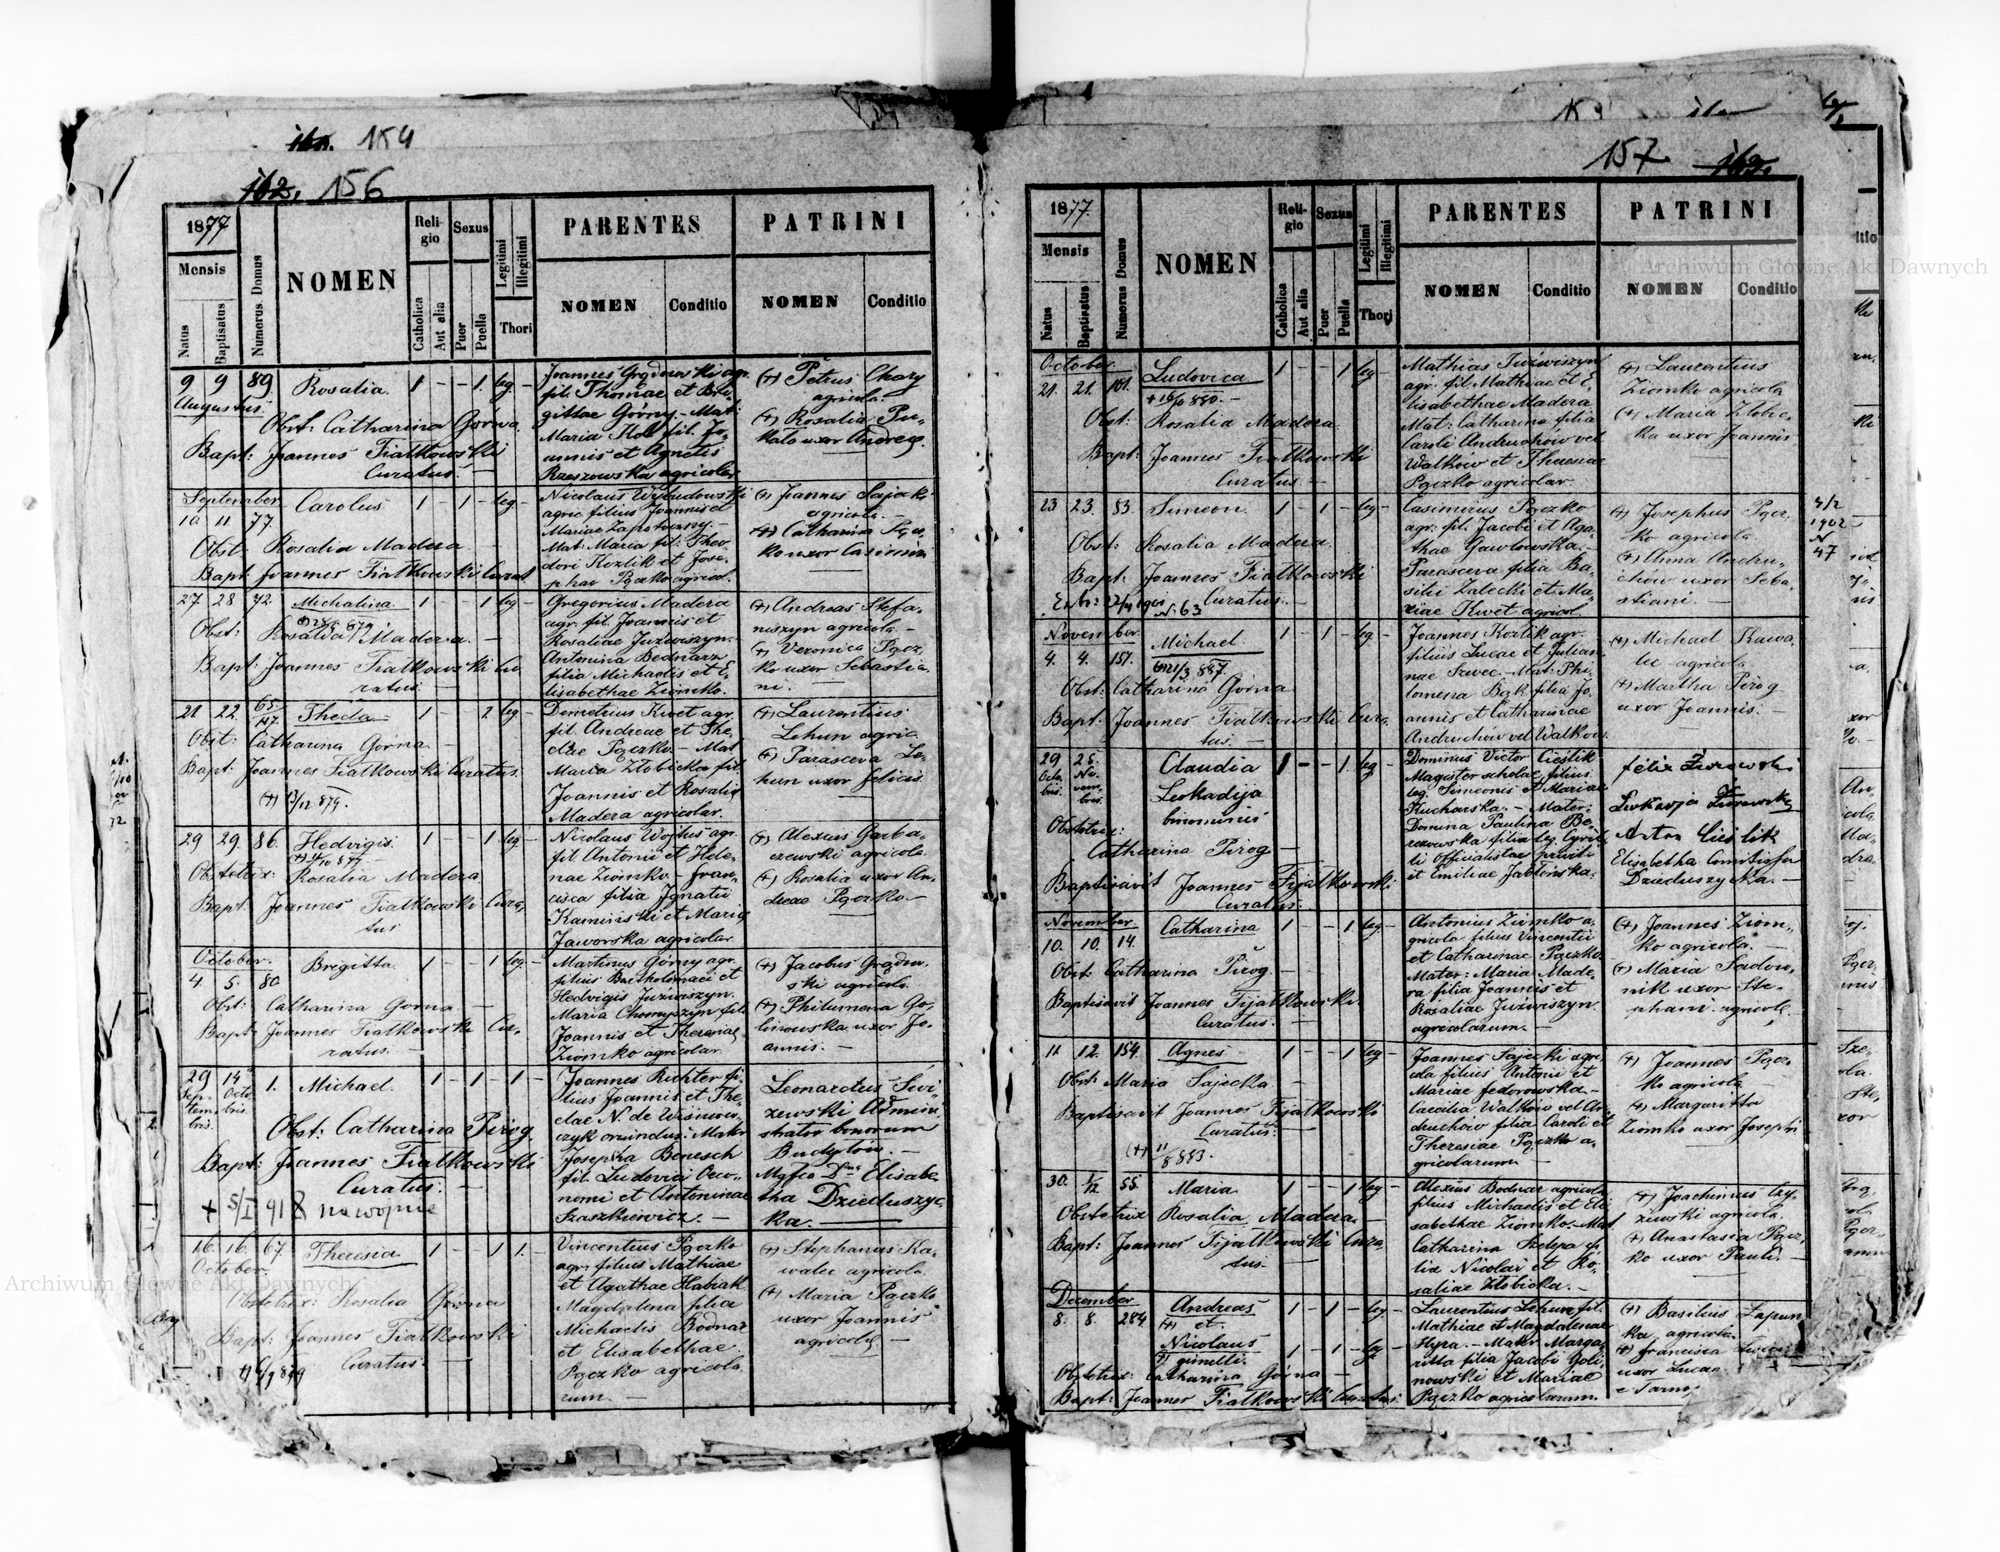 154
156
1877
Mensis
Natus
Baptisatus
Numerus Domus
NOMEN
Religio
Catholica
Aut alia
Sexus
Puer
Puella
Legitimi
Illegitimi
Thori
PARENTES
NOMEN
Conditio
PATRINI
NOMEN
Conditio
9 9 89 Rosalia 1 - - 1 leg -
Augustus
Obst: Catharina Górna
Bapt: Joannes Fiałkowski
Curatus. -
fil. Thomae et Bri-
gittae Górny. - Mat:
Maria Kot fil. Jo-
annis et Agnetis
Rzeszowska agricolar.
(+) Petrus Chary
agricola
(+) Rosalia
uxor Andreae
September Carolus 1 - 1 - leg -
10 11 77
Obst: Rosalia Madera
Bapt Joannes Fiałkowski Curat
agric filius Joannis et
Mat: Maria fil: Theo-
dori Kozlik et Jose-
phae Pączko agricol.
(+) Joannes
agricola. -
(+) Catharina Pącz-
ko uxor Casimiri
27 28 72 Michalina 1 - - 1 leg -
Obst: Rosalia Madera. -
Bapt: Joannes Fiałkowski Cu-
ratus. -
Gregorius Madera
agr. fil. Joannis et
Rosaliae Juzwiszyn.
Antonina Bednarz
filia Michaelis et E-
lisabethae Ziomko.
(+) Andreas Stefa-
niszyn agricola -
(+) Veronica Pącz-
ko uxor Sebastia-
ni. -
21 22 Thecla 1 - - 1 leg -
Obst: Catharina Górna -
Bapt Joannes Fiałkowski Curatus.
Demetrius Kwet agr.
fil Andreae et The-
clae Pączko - Mat
Maria Złobicka fil.
Joannis et Rosalia
Madera agricolar.
(+) Laurentius
Lehun agric.
(+) Parasceva Le-
hun uxor Felicis
29 29 86 Hedvigis 1 - - 1 leg -
Obstetrix: Rosalia Madera
Bapt. Joannes Fiałkowski Cura-
tus
Nicolaus Wojtus agr.
fil Antonii et Hele-
nae Ziomko - Fran-
cisca filia Ignatii
Kaminski et Maria
Jaworska agricolar
(+) Alexius Garba-
czewski agricola
(+) Rosalia uxor An-
dreae Pączko -
October Brigitta 1 - - 1 leg -
4 5 80
Obst: Catharina Górna -
Bapt Joannes Fiałkowski Cu-
ratus. -
Martinus Górny agr.
filius Bartholomaei et
Hedvigis Juzwiszyn.
Joannis et Theresiae
Ziomko agricolar
(+) Jacobus
agricola.
(+) Philumena Go-
linowska uxor Jo-
annis. -
29 14 1. Michael 1 - 1 - 1 -
Septembris Octobris
Obst: Catharina Pirog
Bapt: Joannes Fiałkowski
Curatus. -
+ 5/I 918 na wojnie
Joannes Richter fi-
lius Joannis et The-
clae N. de Wisniow-
czyk oriundus. Mater
Josepha Benesch
fil. Ludovici Oeco-
nomi et Antoninae
Szaszkiewicz. -
Leonardus
Admini-
strator bonorum
Elisabe-
tha Dzieduszyc-
ka.
16. 16. 67. Theresia 1 - - 1 1. -
October
Obstetrix: Rosalia Górna
Bapt: Joannes Fiałkowski
Curatus. -
Vincentius Pączko
agr. filius Mathiae
et Agathae
Magdalena filia
Michaelis Bodnar
et Elisabethae
Pączko agricola-
rum. -
(+) Stephanus Ka-
walec agricola
(+) Maria Pączko
uxor Joannis
agricolae -
157
1877.
Mensis
Natus
Baptisatus
Numerus Domus
NOMEN
Religio
Catholica
Aut alia
Sexus
Puer
Puella
Legitimi
Illegitimi
Thori
PARENTES
NOMEN
Conditio
PATRINI
NOMEN
Conditio
October Ludovica 1 - - 1 leg -
21. 21. 101.
Obst: Rosalia Madera
Bapt: Joannes Fiałkowski
Curatus. -
Mathias Juzwiszyn
agr. fil. Mathiae et E-
lisabethae Madera
Mat: Catharina filia
Caroli Andruchów vel
Walków et Theresiae
Pączko agricolar.
(+) Laurentius
Ziomko agricola
(+) Maria Złobic-
ka uxor Joannis
23 23. 83. Simeon. 1 - 1 - leg -
Obst: Rosalia Madera
Bapt: Joannes Fiałkowski
Curatus. -
N. 63
Casimirus Pączko
agr. fil. Jacobi et Aga-
thae Gawłowska.
Parasceva filia Ba-
silii Zalecki et Ma-
riae Kwet agricol
(+) Josephus Pącz-
ko agricola
(+) Anna Andru-
chów uxor Seba-
stiani -
4/2
1902
N
47
November Michael 1 - 1 - leg -
4. 4. 157.
Obst: Catharina Górna
Bapt: Joannes Fiałkowski Cura-
tus. -
Joannes Kozlik agr.
filius Lucae et Julian-
nae Szwec - Mat: Phi-
lomena Bąk filia Jo-
annis et Catharinae
Andruchow vel Walków.
(+) Michael Kawa-
lec agricola
(+) Martha Pirog
uxor Joannis. -
29 25. Claudia 1 - - 1 leg -
Octobris Novembris
Leokadija
binominis
Obstetrix:
Catharina Pirog -
Baptisavit Joannes Fijałkowski
Curatus.
Dominus Victor Cieślik
Magister scholae, filius
leg. Simeonis et Mariae
Kucharska. - Mater:
Domina Paulina Be-
rezowska filia leg. Cyril-
li Officialistae privati
et Emiliae Jabłońska.
Felix Żurowski
Leokadja Żurowska
Anton Cieślik
Elisabetha Comitissa
Dzieduszycka. -
November Catharina 1 - - 1 leg -
10. 10. 14.
Obst Catharina Pirog. -
Baptisavit Joannes Fijałkowski
Curatus. -
Antonius Ziomko a-
gricola filius Vincentii
et Catharinae Pączko
Mater: Maria Made-
ra filia Joannis et
Rosaliae Juzwiszyn
agricolarum. -
(+) Joannes Ziom-
ko agricola. -
(+) Maria Sadow-
nik uxor Ste-
phani agricolae.
11 12. 154. Agnes 1 - - 1 leg -
Obst: Maria Sajecka -
Baptisavit Joannes Fijałkowski
Curatus. -
(+) 11/8 883.
Joannes Sajecki agri-
cola filius Antonii et
Mariae Fedorowska -
Caecilia Walków vel An-
druchow filia Caroli et
Theresiae Pączko a-
gricolarum -
(+) Joannes Pącz-
ko agricola -
(+) Margaritta
Ziomko uxor Josephi
30. 1/12 55. Maria 1 - - 1 leg -
Obstetrix Rosalia Madera. -
Bapt: Joannes Fijałkowski Cura-
tus. -
Alexius Bodnar agricola
filius Michaelis et Eli-
sabethae Ziomko. Mat
Catharina Szeliga fi-
lia Nicolai et Ro-
saliae Złobicka. -
(+) Joachimus
agricola.
(+) Anastasia Pącz-
ko uxor Pauli. -
December Andreas 1 - 1 - leg -
8. 8. 284 (+) et
Nicolaus 1 - 1 - leg
(+) gemelli.
Obstetrix: Catharina Górna -
Bapt: Joannes Fiałkowski Curatus
Laurentius Lehun fil.
Mathiae et Magdalenae
Hyra. - Mater Marga-
ritta filia Jacobi Goli-
nowski et Mariae
Pączko agricolarum.
(+) Basilius Łapun-
ka, agricola.
(+) Francisca
uxor Lucae
Archiwum Główne Akt Dawnych
Archiwum Główne Akt Dawnych